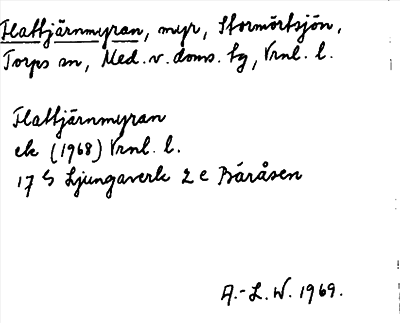 Flattjärnmyran, myr, Stormörtsjön,
Torps sn, Med. v. doms. tg, Vrnl. l.
Flattjärnmyran
ek (1968) Vrnl. l.
17 G Ljungaverk 2 e Båråsen
A.-L. W. 1969.